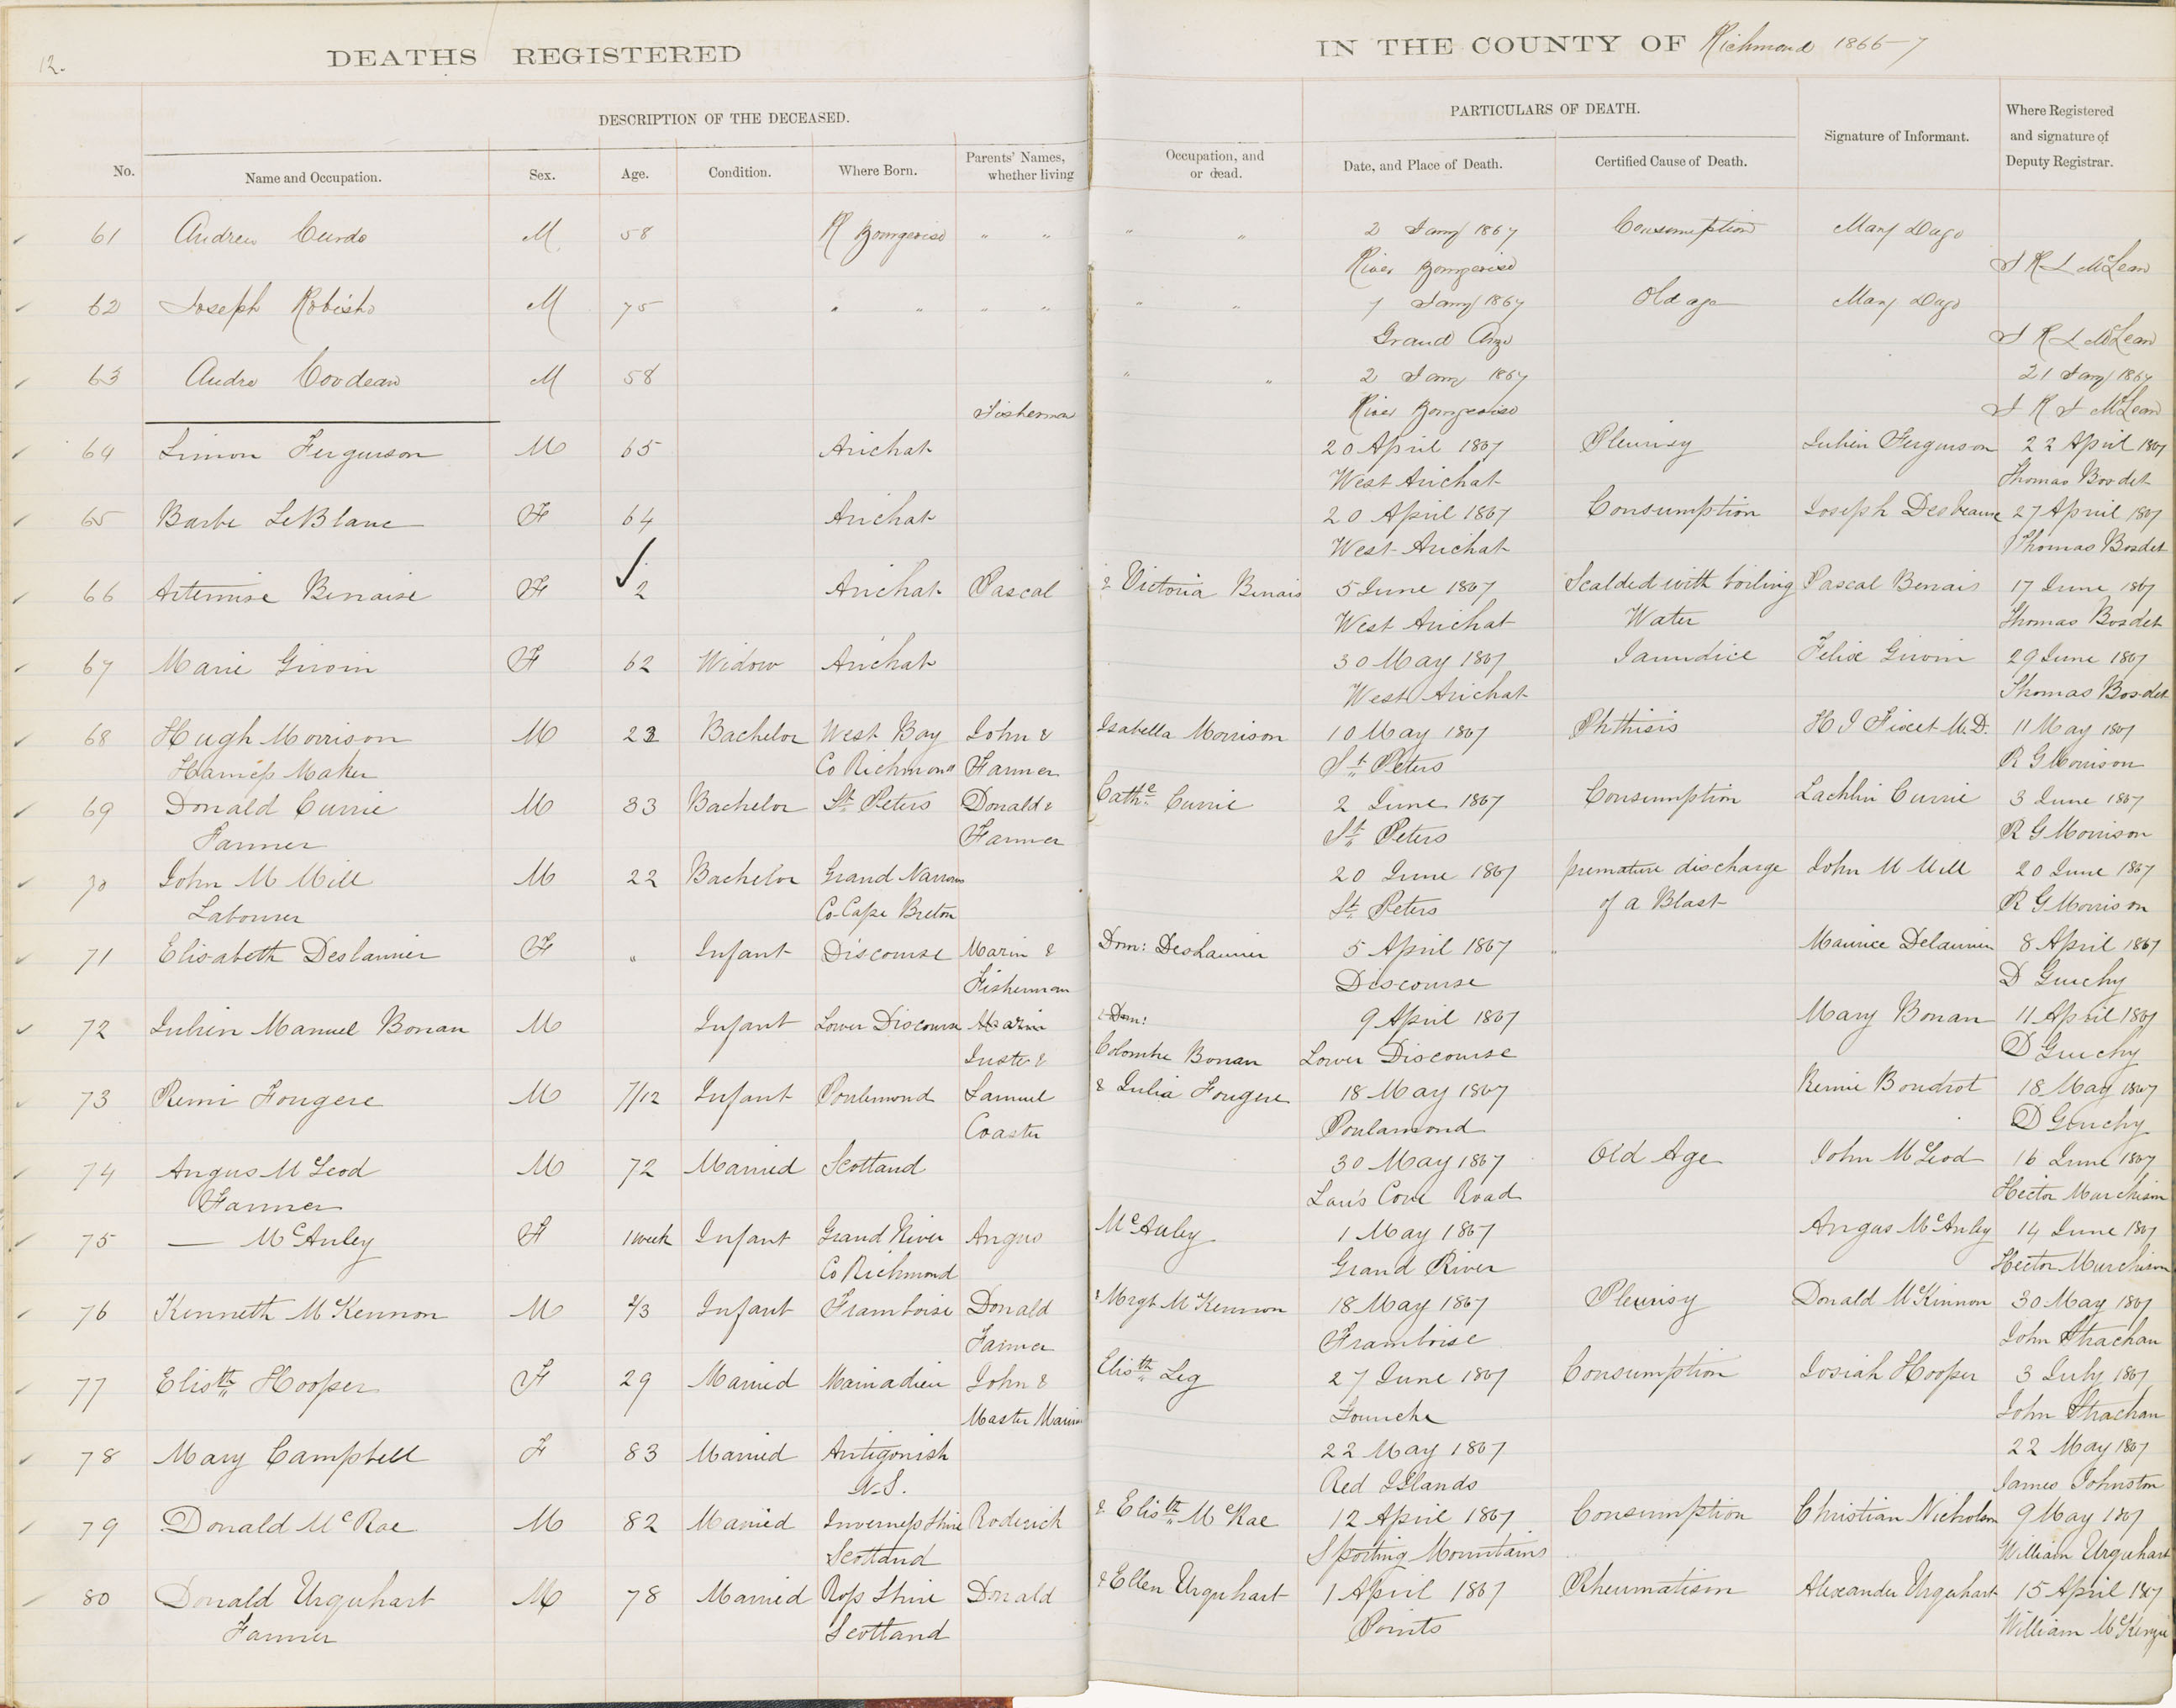 12.
DEATHS REGISTERED IN THE COUNTY OF Richmond 1866-7
DESCRIPTION OF THE DECEASED. PARTICULARS OF DEATH.
No. Name and Occupation. Sex. Age. Condition. Where Born. Parents' Names, whether living Occupation, and or dead. Date, and Place of Death. Certified Cause of Death. Signature of Informant. Where Registered and signature of Deputy Registrar.
61 Andrew M 58 R Bourgeoise " " " " 2 Jany 1867 Consumption Mary Dugo
River Bourgeoise McLean
62 Joseph Robisho M 75 " " " " " " 7 Jany 1867 Old age Mary Dugo
Grand McLean
63 Andre Coodeau M 58 " " 2 Jany 1867 21 Jany 1867
Fisherman River Bourgeoise McLean
64 Simon Ferguson M 65 Arichat 20 April 1867 Pleurisy Julien Ferguson 22 April 1867
West Arichat Thomas Bosdet
65 Barbe LeBlanc F 64 Arichat 20 April 1867 Consumption Joseph 27 April 1867
West Arichat Thomas Bosdet
66 Artemise Benaise F 2 Arichat Pascal & Victoria Benais 5 June 1867 Scalded with boiling Pascal Benais 17 June 1867
West Arichat Water Thomas Bosdet
67 Marie Giroin F 62 Widow Arichat 30 May 1867 Jaundice Felix Giroin 29 June 1867
West Arichat Thomas Bosdet
68 Hugh Morrison M 23 Bachelor West Bay John & Isabella Morrison 10 May 1867 Phthisis H J Fixet M.D. 11 May 1867
Harness Maker Co Richmond Farmer St Peters R G Morrison
69 Donald Currie M 33 Bachelor St Peters Donald & Cathe Currie 2 June 1867 Consumption Lachlin Currie 3 June 1867
Farmer Farmer St Peters R G Morrison
70 John M Mill M 22 Bachelor Grand Narrows 20 June 1867 premature discharge John M Mill 20 June 1867
Labourer Co Cape Breton St Peters of a Blast R G Morrison
71 Elisabeth Deslaurier F " Infant Discourse Marin & Dom: Deslaurier 5 April 1867 " Maurice Delaurier 8 April 1867
Fisherman Discourse D Guichy
72 Julien Manuel Bonan M Infant Lower Discourse Marin & Dom: 9 April 1867 Mary Bonan 11 April 1867
Juste & Colombe Bonan Lower Discourse D Guichy
73 Remi Fougere M 7/12 Infant Poulemond Samuel & Julia Fougere 18 May 1867 Remie Boudrot 18 May 1867
Coaster Poulamond D Guichy
74 Angus McLeod M 72 Married Scotland 30 May 1867 Old Age John McLeod 16 June 1867
Farmer Cove Road Hector Murchison
75 — McAuley F 1 week Infant Grand River Angus McAuley 1 May 1867 Angus McAuley 14 June 1867
Co Richmond Grand River Hector Murchison
76 Kenneth McKennon M 2/3 Infant Framboise Donald & Mrgt McKennon 18 May 1867 Pleurisy Donald McKinnon 30 May 1867
Farmer Framboise John Strachan
77 Elisth Hooper F 29 Married Mainadieu John & Elisth Leg 27 June 1867 Consumption Josiah Hooper 3 July 1867
Master Mariner Fourche John Strachan
78 Mary Campbell F 83 Married Antigonish 22 May 1867 22 May 1867
N.S. Red Islands James Johnston
79 Donald McRae M 82 Married Inverness Shire Roderick & Elisth McRae 12 April 1867 Consumption Christian Nicholson 9 May 1867
Scotland Sporting Mountains William Urquhart
80 Donald Urquhart M 78 Married Ross Shire Donald & Ellen Urquhart 1 April 1867 Rheumatism Alexander Urquhart 15 April 1867
Farmer Scotland Points William McKenzie